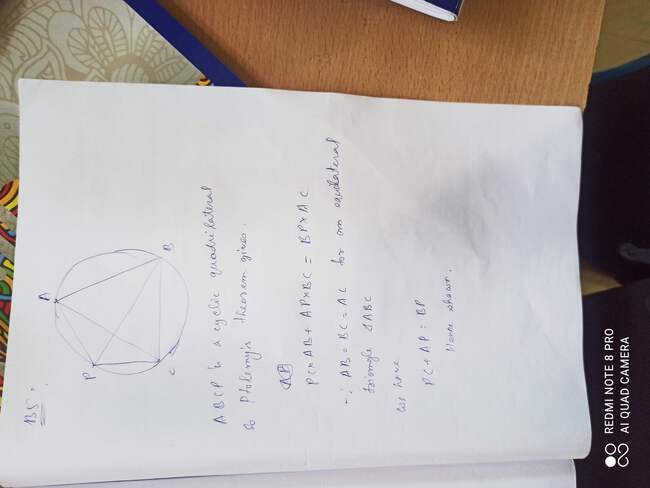 B5:
A
P
C
B
ABCP is a cyclic quadrilateral
So Ptolemy's theorem gives.
PC×AB + AP×BC = BP×AC
∵ AB = BC = AC for an equilateral
triangle ΔABC
we have
PC + AP = BP
Hence shown.
REDMI NOTE 8 PRO
AI QUAD CAMERA